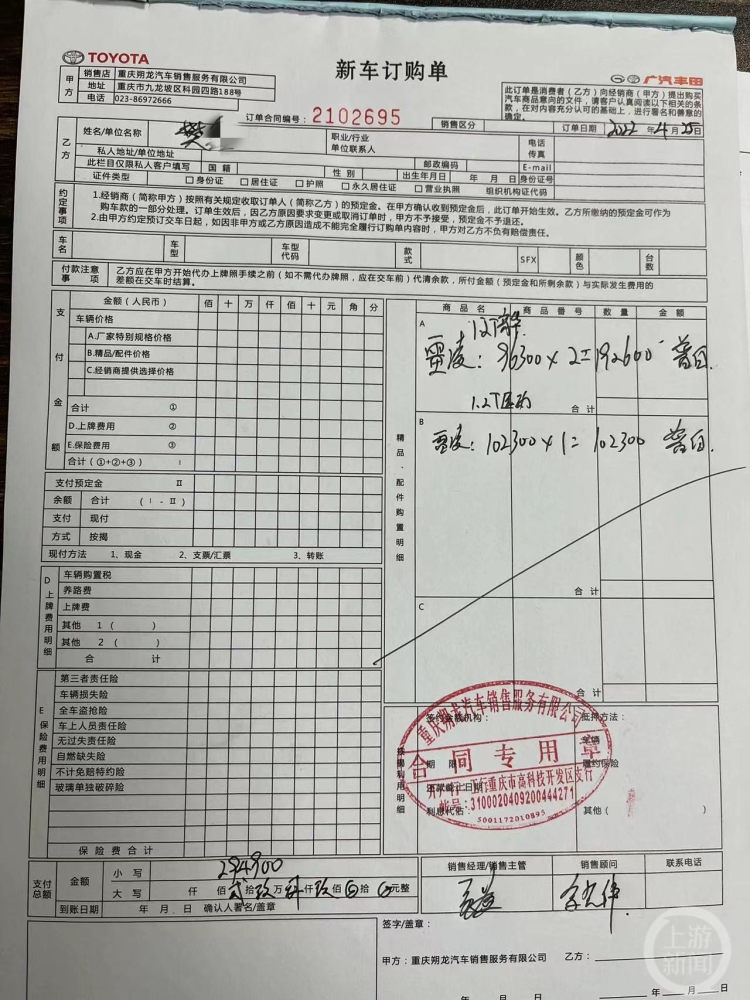 TOYOTA
新车订购单
广汽丰田
甲方
销售店 重庆朔龙汽车销售服务有限公司
地址 重庆市九龙坡区科园四路188号
电话 023-86972666
此订单是消费者（乙方）向经销商（甲方）提出购买
汽车商品意向的文件，请客户认真阅读以下相关的条
款，在对内容充分认可的基础上，进行署名和善意的
确定。
订单合同编号：2102695
销售区分
订单日期 2022 年 4 月 25 日
乙方
姓名/单位名称 樊
职业/行业
单位联系人
电话
传真
私人地址/单位地址
邮政编码
E-mail
此栏目仅限私人客户填写 国籍 性别 出生年月日 年 月 日 身份证号
证件类型 □身份证 □居住证 □护照 □永久居住证 □营业执照 组织机构证代码
约定事项
1.经销商（简称甲方）按照有关规定收取订单人（简称乙方）的预定金。在甲方确认收到预定金后，此订单开始生效。乙方所缴纳的预定金可作为
购车款的一部分处理。订单生效后，因乙方原因要求变更或取消订单时，甲方不予接受，预定金不予退还。
2.由甲方约定预订交车日起，如因非甲方或乙方原因造成不能完全履行订购单内容时，甲方对乙方不负有赔偿责任。
车名 车型 车型代码 款式 SFX 颜色 台数
付款注意事项
乙方应在甲方开始代办上牌照手续之前（如不需代办牌照，应在交车前）代清余款，所付金额（预定金和所剩余款）与实际发生费用的
差额在交车时结算。
支付金额
金额（人民币） 佰 十 万 仟 佰 十 元 角 分
车辆价格
A.厂家特别规格价格
B.精品/配件价格
C.经销商提供选择价格
合计 ①
D.上牌费用 ②
E.保险费用 ③
合计（①+②+③） I
支付预定金 II
余额 合计 （I - II）
支付 现付
方式 按揭
现付方法 1、现金 2、支票/汇票 3、转账
D上牌费用明细
车辆购置税
养路费
上牌费
其他 1（ ）
其他 2（ ）
合计
E保险费用明细
第三者责任险
车辆损失险
全车盗抢险
车上人员责任险
无过失责任险
自燃缺失险
不计免赔特约险
玻璃单独破碎险
保险费合计
精品、配件购置明细
商品名 商品番号 数量 金额
A
雷凌：96300×2=192600 普白.
合计
B
雷凌：102300×1=102300 普白.
合计
C
合计
签约金融机构： 抵押方法：
期限
车辆
履约保险
还款截止日期
利息代估：
其他（ ）
重庆朔龙汽车销售服务有限公司
合同专用章
重庆市高科技开发区支行
帐号：3100020409200444271
5001172010895
支付总额
金额
小写 294900
大写 仟 佰 贰拾 玖万 肆仟 玖佰 拾 元整
到账日期 年 月 日 确认人署名/盖章
销售经理/销售主管 销售顾问 联系电话
签字/盖章：
甲方：重庆朔龙汽车销售服务有限公司 乙方：
年 月 日 年 月 日
上游新闻